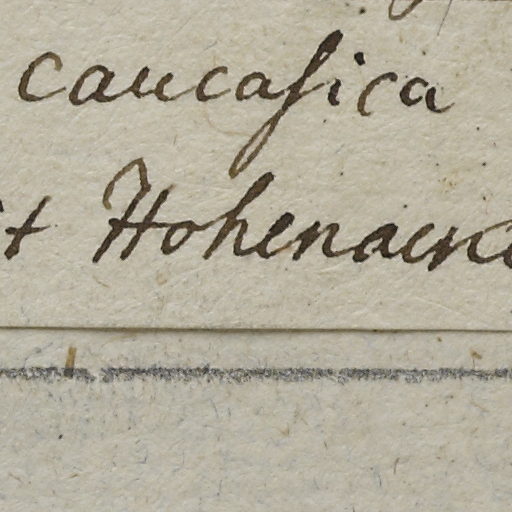 caucasica
Hohenack